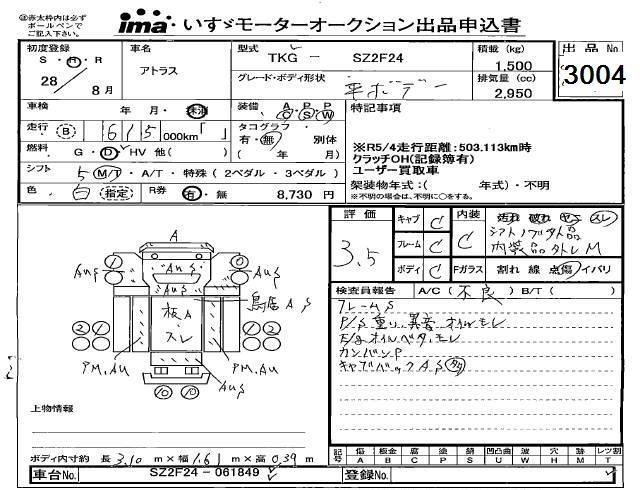 ※赤太枠内は必ずボールペンでご記入下さい。
ima いすゞモーターオークション出品申込書
初度登録 S・H・R 28 / 8月
車名 アトラス
型式 TKG - SZ2F24
グレード・ボディ形状 平ボデー
積載 (kg) 1,500
排気量 (cc) 2,950
出品No 3004
車検 年 月・抹消
装備 A・P・P C S W
走行 (B) 615,000km「 」
タコグラフ 有・無 別体 ( 年 月)
燃料 G・D・HV 他( )
シフト 5 M/T・A/T・特殊 (2ペダル・3ペダル)
色 白 (指定) R券 有・無 8,730 円
特記事項
※R5/4走行距離:503,113km時
クラッチOH(記録簿有)
ユーザー買取車
架装物年式:( 年式)・不明
※不明の場合は、不明に○をする。
評価 3.5
キャブ C
フレーム C
ボディ C
内装 C
汚れ 破れ ヤニ スレ
シフトノブ欠品
内装品外レM
Fガラス 割れ 線 点傷 イバリ
検査員報告 A/C( 不良 ) B/T( )
フレームS
P/S重り、異音オイルモレ
E/gオイルベタ、モレ
カンバンP
キャブバックAS(多)
A
1 0
AuS AuS AuS
AuS
鳥居AS
板A
スレ
2 1 1 2
PM.AU PM.AU
AuS
10 10
上物情報
ボディ内寸約 長 3.10 m×幅 1.61 m×高 0.39 m
記号 傷 板金 腐 塗 錆 凹凸曲 波 穴 跡 レツ割
A B C P S U W H M T
車台No. SZ2F24 - 061849
登録No.